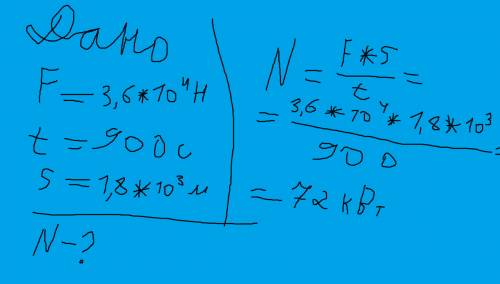 Дано
F = 3,6*10⁴ Н
t = 900 с
s = 1,8*10³ м
N - ?
N = F*s / t =
= 3,6*10⁴*1,8*10³ / 900 =
= 72 кВт